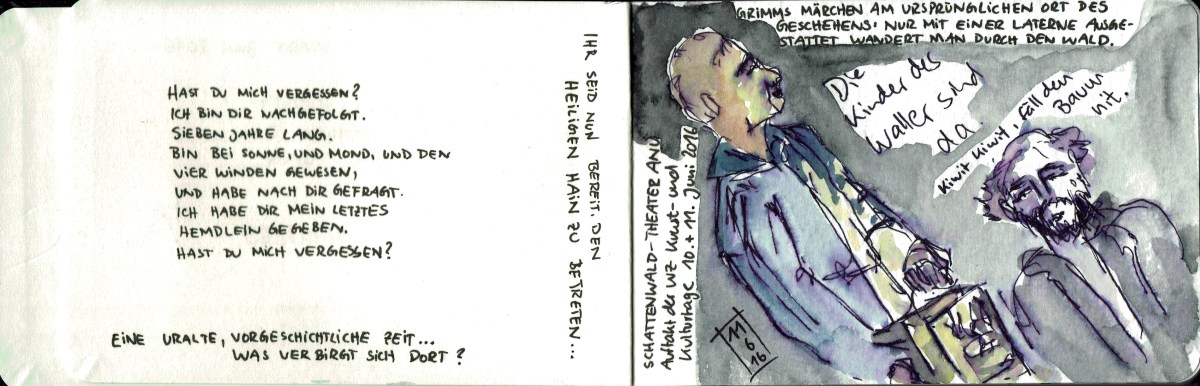 HAST DU MICH VERGESSEN?
ICH BIN DIR NACHGEFOLGT.
SIEBEN JAHRE LANG.
BIN BEI SONNE, UND MOND, UND DEN
VIER WINDEN GEWESEN,
UND HABE NACH DIR GEFRAGT.
ICH HABE DIR MEIN LETZTES
HEMDLEIN GEGEBEN.
HAST DU MICH VERGESSEN?
EINE URALTE, VORGESCHICHTLICHE ZEIT...
WAS VERBIRGT SICH DORT?
IHR SEID NUN BEREIT. DEN
HEILIGEN HAIN ZU BETRETEN...
GRIMMS MÄRCHEN AM URSPRÜNGLICHEN ORT DES
GESCHEHENS: NUR MIT EINER LATERNE AUSGE-
STATTET WANDERT MAN DURCH DEN WALD.
Die
Kinder des
Waller sind
da.
Kiwit Kiwit, fäll den
Baum
nit.
SCHATTENWALD-THEATER ANU
Auftakt der WZ Kunst- und
Kulturtage 10.+ 11. Juni 2016
11
6
16